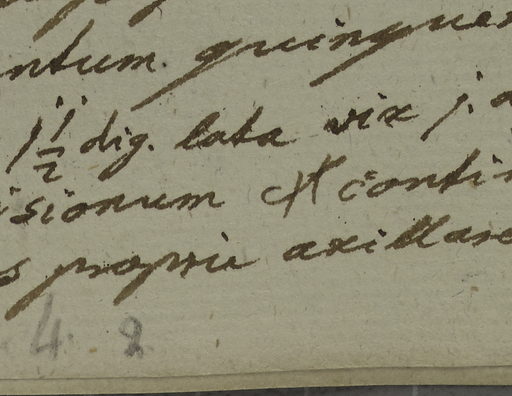 ntum. quinquen
j 1/2 dig. lata vix j. d
isionum et contin
s propriè axillare
4. 2